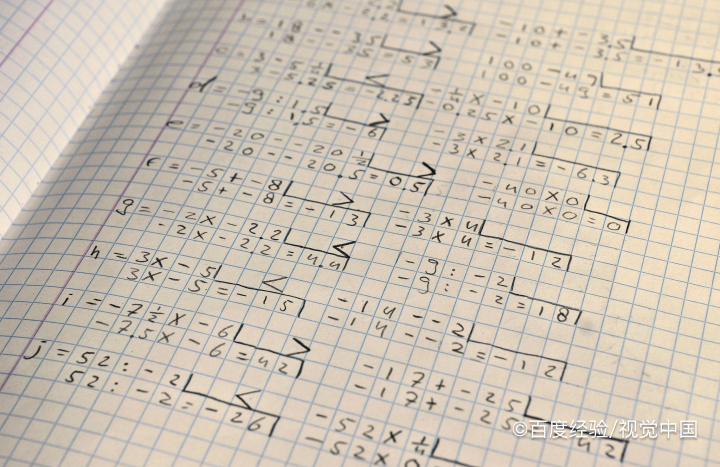 18 -- 35
18 -- 35 = 53
-10 + - 3.5
-10 + - 3.5 = -13.
c = 3 - 5 1/4
3 - 5.25 = -2.25
<
100 - 49
100 - 49 = 51
d = -9 : 1.5
-9 : 1.5 = -6
>
-1/4 x -10
-0.25 x -10 = 2.5
e = -20 -- 20 1/2
-20 -- 20.5 = 0.5
>
-3 x 2.1
-3 x 2.1 = -6.3
f = -5 + -8
-5 + -8 = -13
>
-40 x 0
-40 x 0 = 0
g = -2 x -2.2
-2 x -2.2 = 4.4
<
-3 x 4
-3 x 4 = -12
h = 3x - 5
3x - 5 = -15
<
-9 : -2
-9 : -2 = 18
i = -7 1/2 x -6
-7.5 x -6 = 42
>
-14 -- 2
-14 -- 2 = -12
j = 52 : -2
52 : -2 = -26
<
-17 + -25
-17 + -25
42
-52 x 1/4
52 x
©百度经验/视觉中国